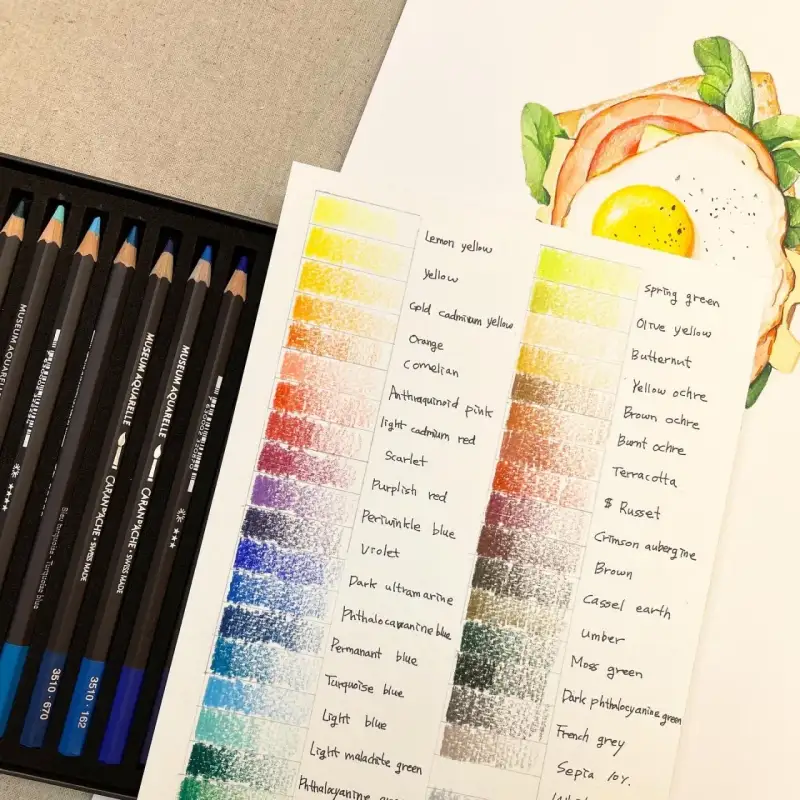 MUSEUM AQUARELLE
MUSEUM AQUARELLE
CARAN D'ACHE · SWISS MADE
MUSEUM AQUARELLE
CARAN D'ACHE · SWISS MADE
Bleu turquoise · Turquoise blue
3510 · 670
3510 · 162
Lemon yellow
Yellow
Gold cadmium yellow
Orange
Cornelian
Anthraquinoid pink
light cadmium red
Scarlet
Purplish red
Periwinkle blue
Violet
Dark ultramarine
Phthalocyanine blue
Permanant blue
Turquoise blue
Light blue
Light malachite green
Phthalocyanine
spring green
Olive yellow
Butternut
Yellow ochre
Brown ochre
Burnt ochre
Terracotta
$ Russet
Crimson aubergine
Brown
Cassel earth
Umber
Moss green
Dark phthalocyanine green
French grey
Sepia 10%.